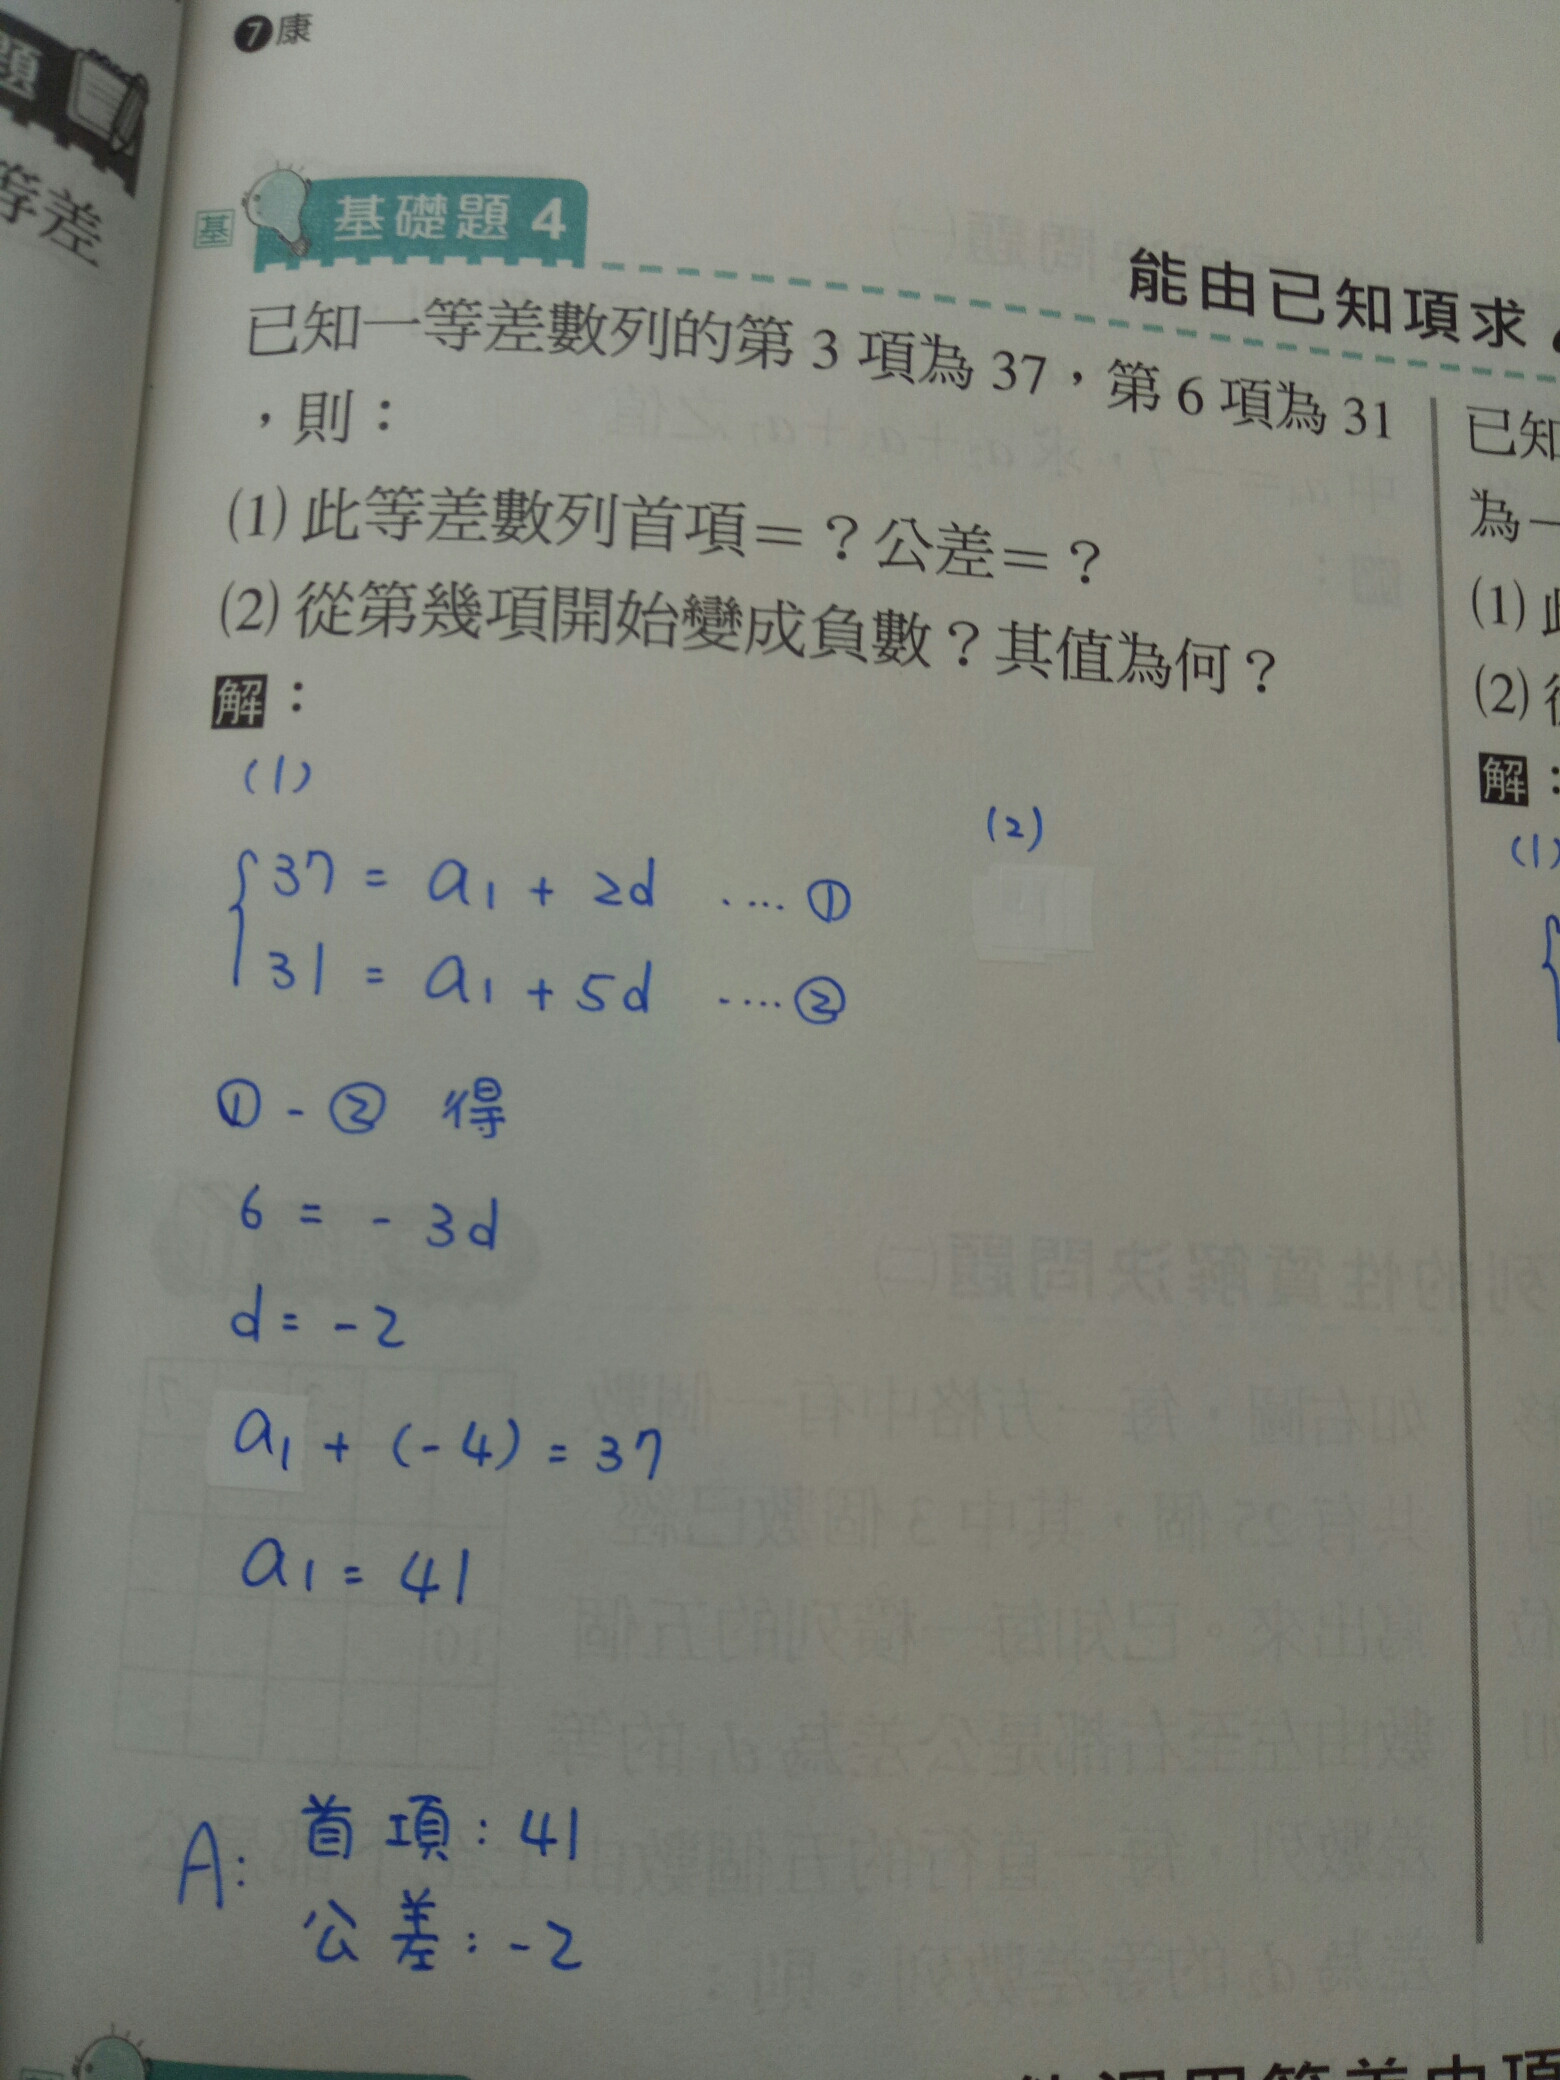 7康
題
等差
基
基礎題 4
能由已知項求
已知一等差數列的第 3 項為 37，第 6 項為 31
，則：
(1) 此等差數列首項＝？公差＝？
(2) 從第幾項開始變成負數？其值為何？
解：
(1)
37 = a₁ + 2d ....①
31 = a₁ + 5d ....②
① - ② 得
6 = - 3d
d = -2
a₁ + (-4) = 37
a₁ = 41
A: 首項: 41
公差: -2
(2)
已知
為一
(1)
(2)
解：
(1)